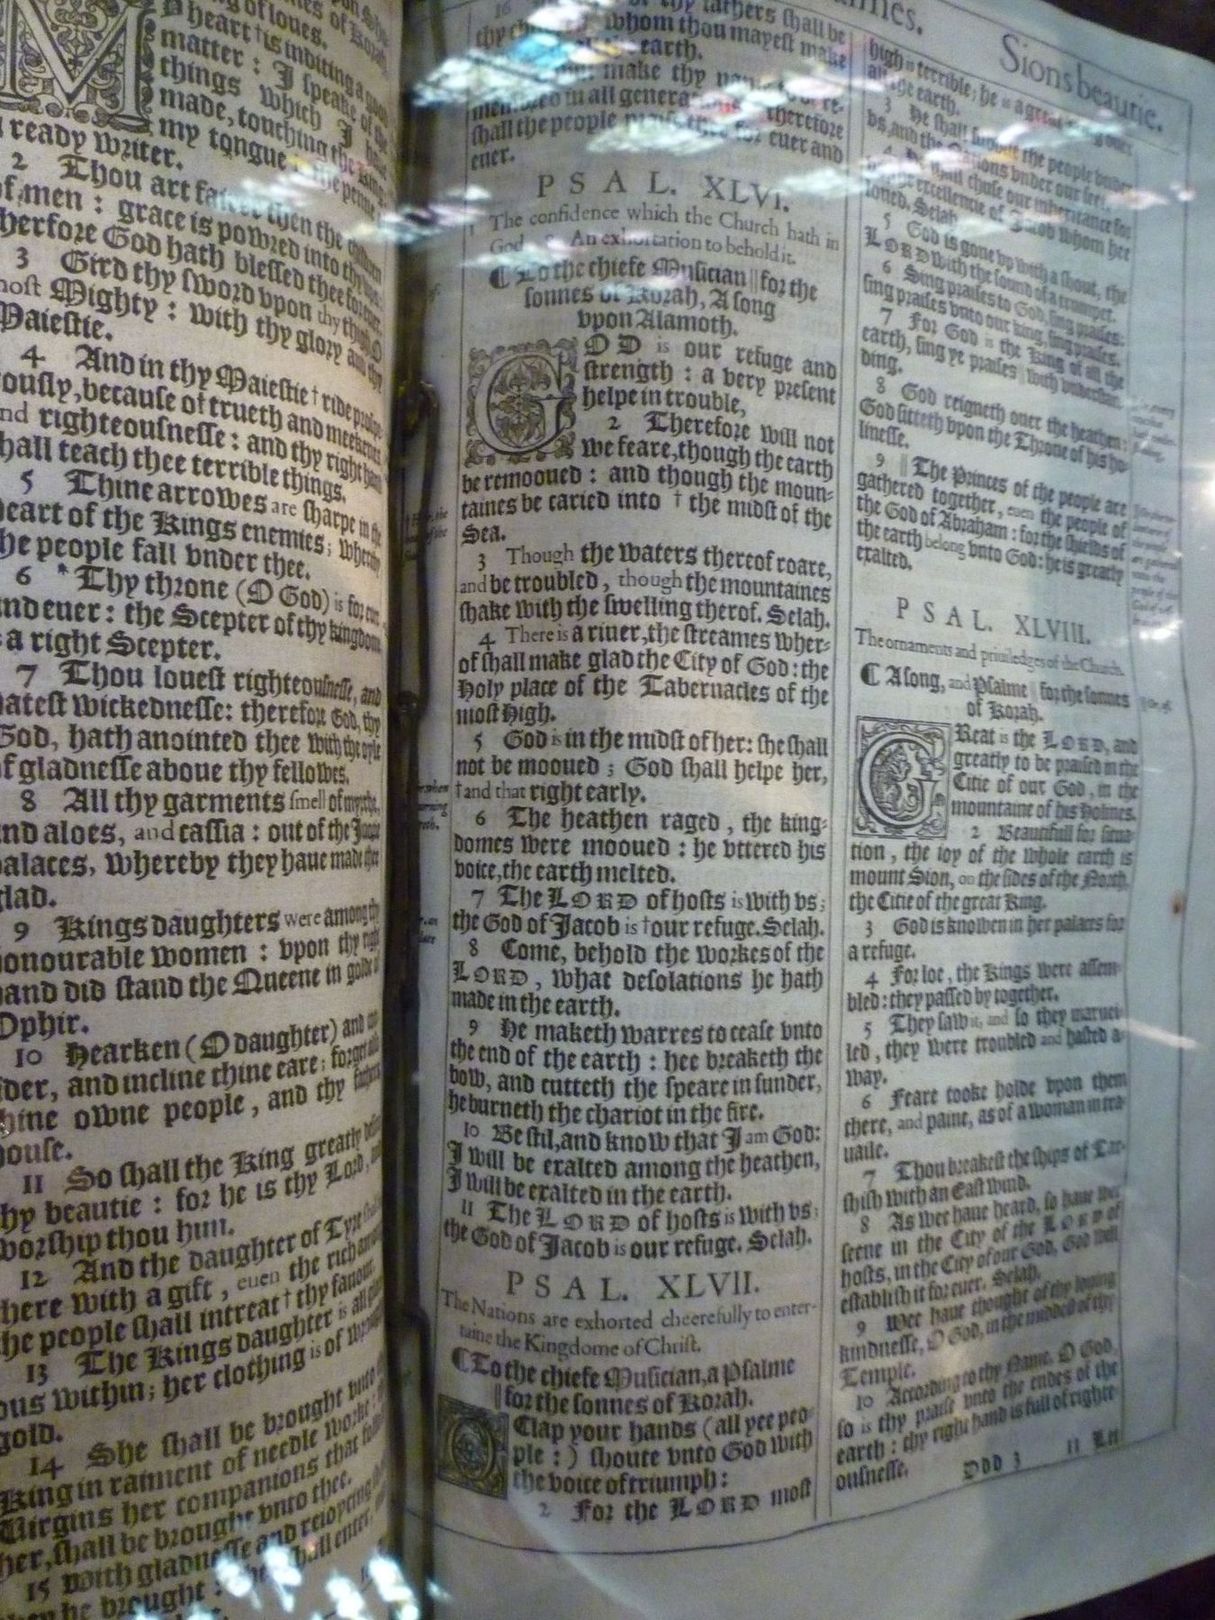 M
heart † is inditing a good
matter : I speake of the
things which I haue
made, touching the King:
my tongue is the penne
ready writer.
2 Thou art fairer then the children
of men : grace is powred into thy lips:
therfore God hath blessed thee for euer.
3 Gird thy sword vpon thy thigh, O
most Mighty : with thy glory and thy
Maiestie.
4 And in thy Maiestie † ride prospe-
rously, because of trueth and meekenes
and righteousnesse : and thy right hand
shall teach thee terrible things.
5 Thine arrowes are sharpe in the
heart of the Kings enemies; whereby
the people fall vnder thee.
6 * Thy throne (O God) is for euer
and euer : the Scepter of thy kingdome
is a right Scepter.
7 Thou louest righteousnesse, and
hatest wickednesse: therefore God, thy
God, hath anointed thee with the oyle
of gladnesse aboue thy fellowes.
8 All thy garments smell of myrrhe,
and aloes, and cassia : out of the
palaces, whereby they haue made thee
glad.
9 Kings daughters were among thy
honourable women : vpon thy right
hand did stand the Queene in golde of
Ophir.
10 Hearken (O daughter) and
and incline thine eare; forget
thine owne people, and thy fathers
house.
11 So shall the King greatly desire
thy beautie : for he is thy Lord, and
worship thou him.
12 And the daughter of Tyre
there with a gift, euen the rich among
the people shall intreat † thy fauour.
13 The Kings daughter is all
within; her clothing is of wrought
gold.
14 She shall be brought vnto
King in raiment of needle worke:
Uirgins her companions that follow
her, shall be brought vnto thee.
15 With gladnesse and reioycing
they be brought : shall enter
thy fathers shall be
whom thou mayest make
earth.
make thy
in all generations: therefore
shall the people praise thee for euer and
euer.
PSAL. XLVI.
1 The confidence which the Church hath in
God. 8 An exhortation to behold it.
¶ To the chiefe Musician || for the
sonnes of Korah, A song
vpon Alamoth.
GOD is our refuge and
strength : a very present
helpe in trouble,
2 Therefore will not
we feare, though the earth
be remooued : and though the moun-
taines be caried into † the midst of the
Sea.
3 Though the waters thereof roare,
and be troubled, though the mountaines
shake with the swelling therof. Selah.
4 There is a riuer, the streames wher-
of shall make glad the City of God : the
Holy place of the Tabernacles of the
most High.
5 God is in the midst of her : she shall
not be mooued ; God shall helpe her,
† and that right early.
6 The heathen raged, the king-
domes were mooued : he vttered his
voice, the earth melted.
7 The LORD of hosts is with vs;
the God of Jacob is † our refuge. Selah.
8 Come, behold the workes of the
LORD, what desolations he hath
made in the earth.
9 He maketh warres to cease vnto
the end of the earth : hee breaketh the
bow, and cutteth the speare in sunder,
he burneth the chariot in the fire.
10 Be stil, and know that I am God:
I will be exalted among the heathen,
I will be exalted in the earth.
11 The LORD of hosts is with vs;
the God of Jacob is our refuge. Selah.
PSAL. XLVII.
The Nations are exhorted cheerefully to enter-
taine the Kingdome of Christ.
¶ To the chiefe Musician, a Psalme
|| for the sonnes of Korah.
O Clap your hands (all yee peo-
ple :) shoute vnto God with
the voice of triumph :
2 For the LORD most
Sions beautie.
high is terrible; he is a great
all the earth.
3 He shall subdue the people vnder
vs, and the Nations vnder our feet.
4 He shall chuse our inheritance for
excellencie of Jacob whom hee
loued. Selah.
5 God is gone vp with a shout, the
LORD with the sound of a trumpet.
6 Sing praises to God, sing praises:
sing praises vnto our king, sing praises.
7 For God is the King of all the
earth, sing ye praises || with vnderstan-
ding.
8 God reigneth ouer the heathen:
God sitteth vpon the Throne of his ho-
linesse.
9 || The Princes of the people are
gathered together, euen the people of
the God of Abraham : for the shields of
the earth belong vnto God : he is greatly
exalted.
PSAL. XLVIII.
The ornaments and priuiledges of the Church.
¶ A song, and Psalme || for the sonnes
of Korah.
GReat is the LORD, and
greatly to be praised in the
Citie of our God, in the
mountaine of his Holines.
2 Beautifull for situa-
tion, the ioy of the whole earth is
mount Sion, on the sides of the North,
the Citie of the great King.
3 God is knowen in her palaces for
a refuge.
4 For loe, the Kings were assem-
bled : they passed by together.
5 They saw it, and so they maruei-
led, they were troubled and hasted a-
way.
6 Feare tooke holde vpon them
there, and paine, as of a woman in tra-
uaile.
7 Thou breakest the ships of Tar-
shish with an East wind.
8 As wee haue heard, so haue wee
seene in the City of the LORD of
hosts, in the City of our God, God will
establish it for euer. Selah.
9 Wee haue thought of thy louing
kindnesse, O God, in the middest of thy
Temple.
10 According to thy Name, O God,
so is thy praise vnto the endes of the
earth : thy right hand is full of righte-
ousnesse.
Ddd 3 11 Let